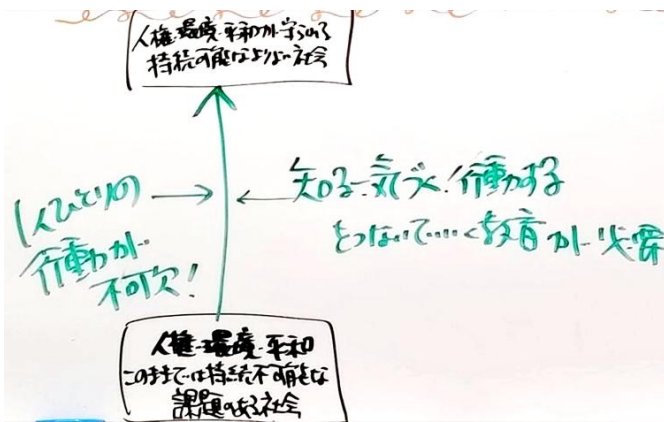 人権・環境・平和が守られる
持続可能なよりよい社会
1人ひとりの
行動が
不可欠!
知る・気づく・行動する
をつないでいく教育が必要
人権・環境・平和
このままでは持続不可能な
課題のある社会